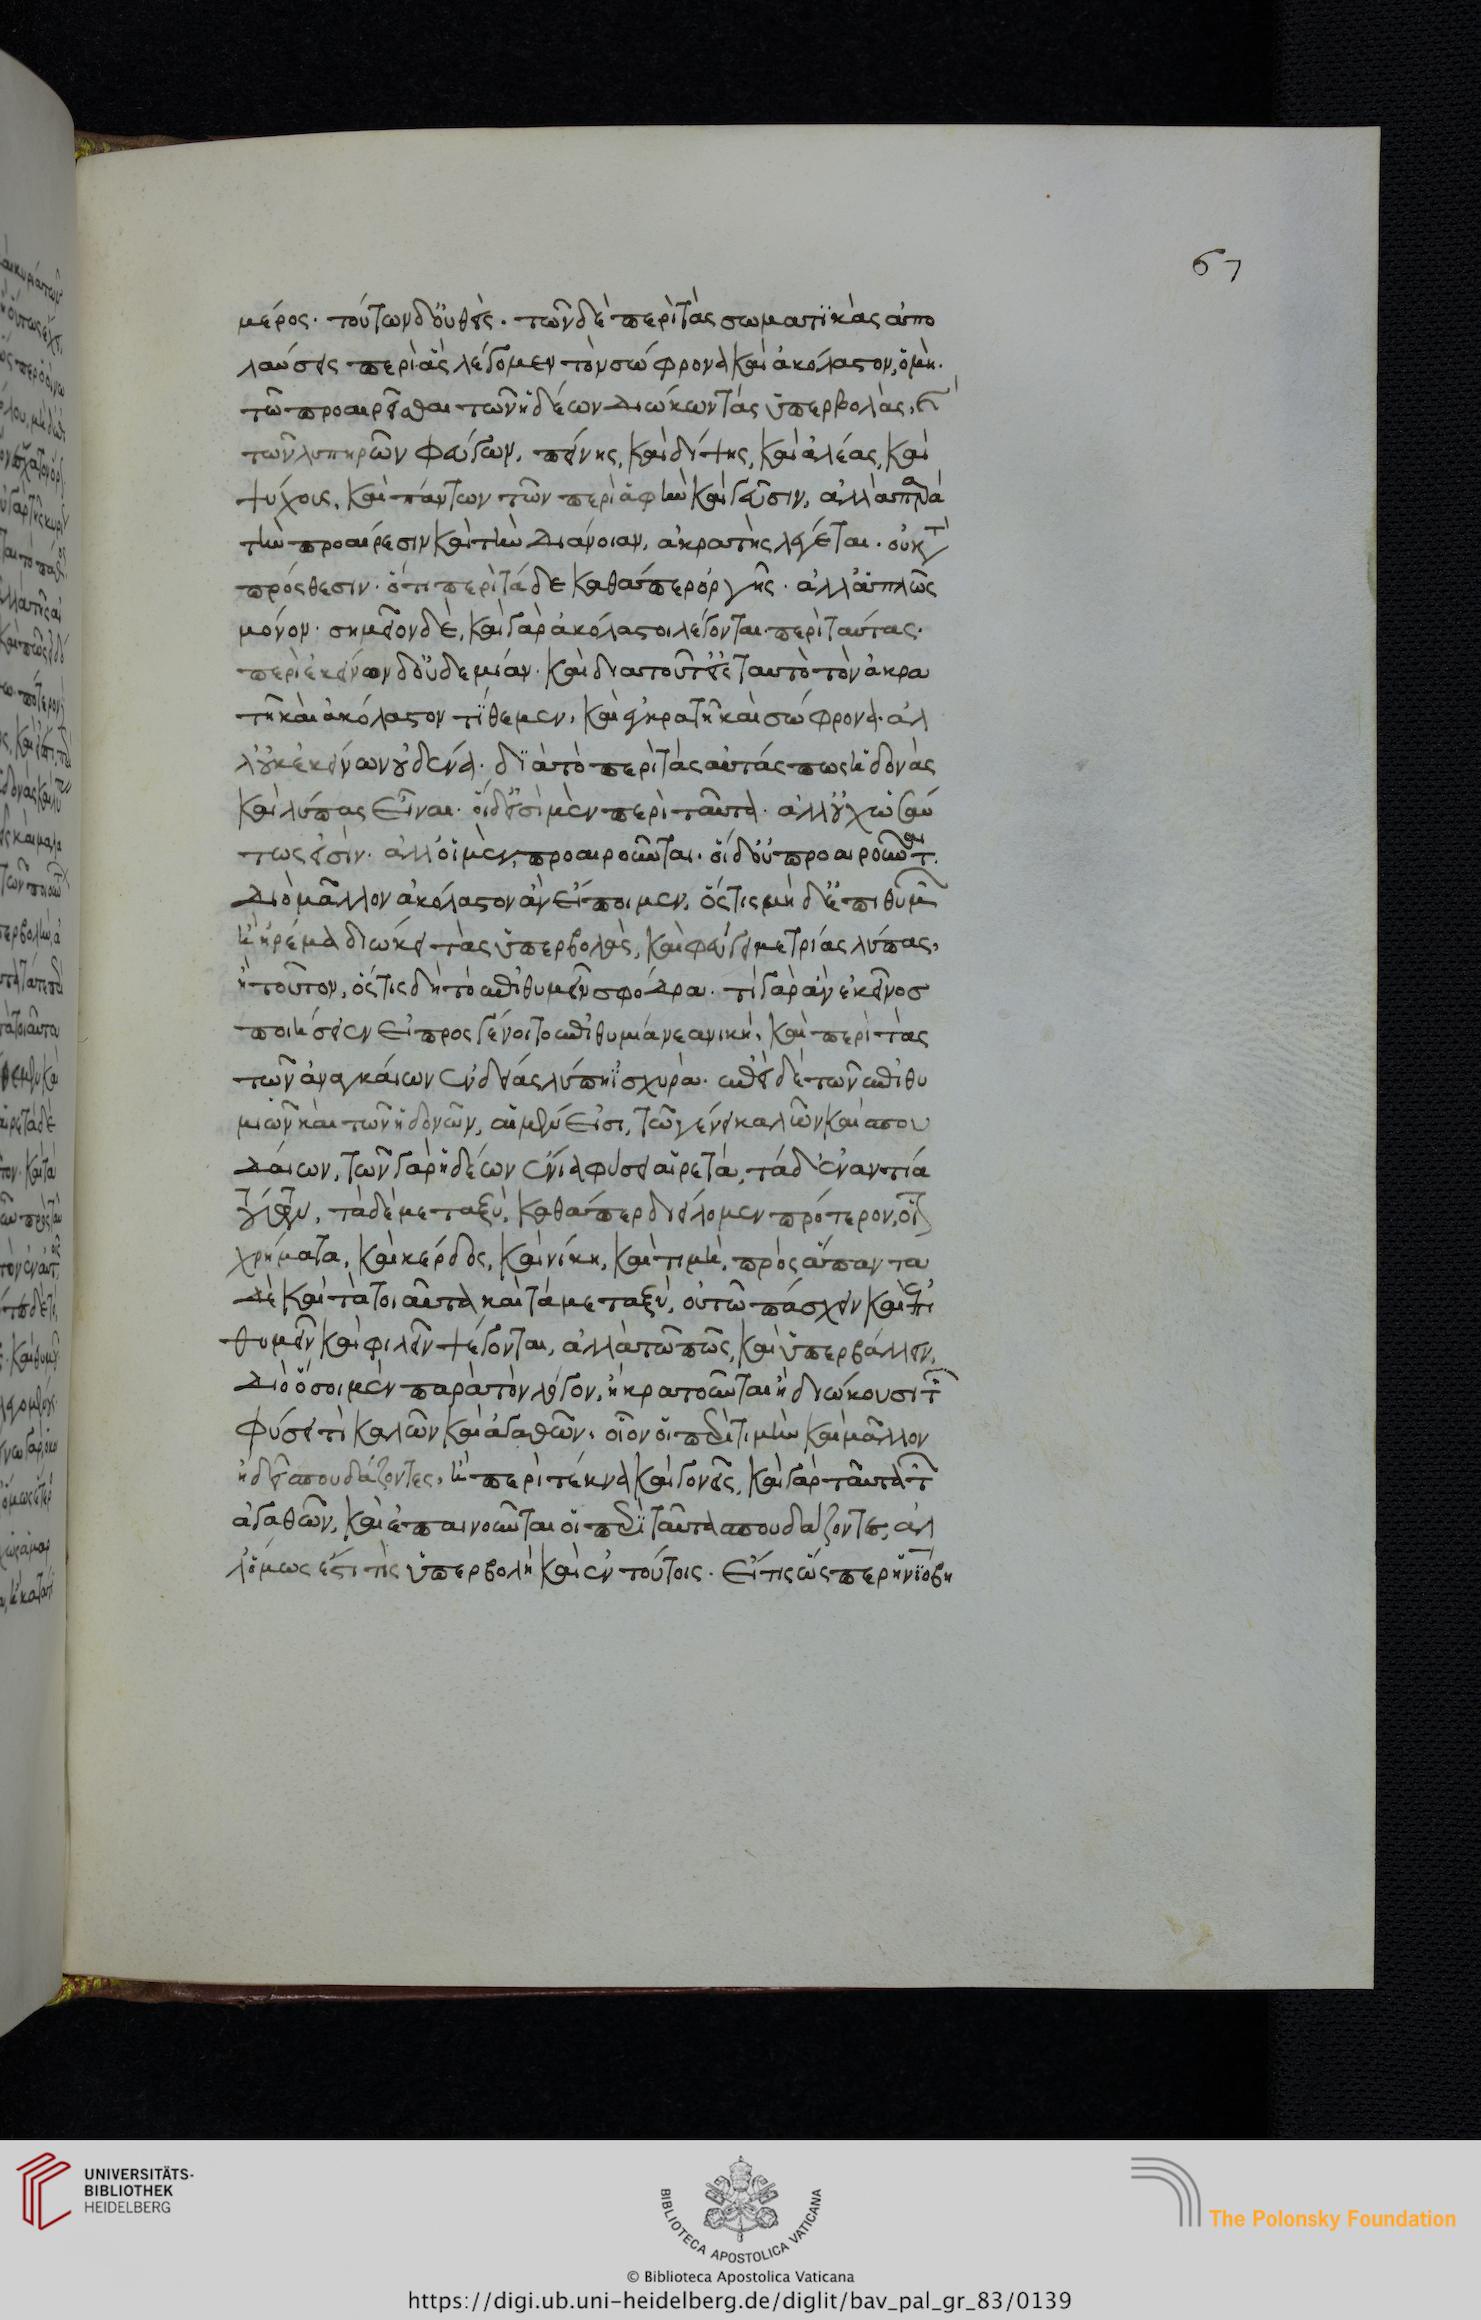 67
μέρος. τούτων δ' οὐθεὶς. τῶν δὲ περὶ τὰς σωματϊκὰς απο
λαύσεις περὶ ἃς λέγομεν τὸν σώφρονα καὶ ἀκόλαστον, ὁ μὴ.
τῶ προαιρεῖσθαι τῶν ἡδέων διώκων τὰς ὑπερβολὰς, καὶ
τῶν λυπηρῶν φεύγων, πείνης, καὶ δίψης, καὶ ἀλέας, καὶ
ψύχους, καὶ πάντων τῶν περὶ ἁφὴν καὶ γεῦσιν, ἀλλὰ παρὰ
τὴν προαίρεσιν καὶ τὴν διάνοιαν, ἀκρατὴς λέγεται. οὐ κατὰ
πρόσθεσιν. ὅτι περὶ τάδε καθάπερ ὀργῆς. ἀλλ' ἁπλῶς
μόνον. σημεῖον δὲ, καὶ γὰρ ἀκόλαστοι λέγονται περὶ ταύτας.
περὶ ἐκείνων δ' οὐδεμίαν. καὶ διὰ τοῦτ' εἰς ταυτὸ τὸν ἀκρα
τῆ καὶ ἀκόλαστον τίθεμεν, καὶ ἐγκρατῆ καὶ σώφρονα. ἀλ
λ' οὐκ ἐκείνων οὐδενά. διὰ τὸ περὶ τὰς αὐτάς πως ἡδονὰς
καὶ λύπας εἶναι. οἱ δ' εἰσὶ μὲν περὶ ταῦτα. ἀλλ' οὐχ ὡσαύ
τως εἰσίν. ἀλλ' οἱ μὲν, προαιροῦνται. οἱ δ' οὐ προαιροῦνται.
Διὸ μᾶλλον ἀκόλαστον ἂν εἴποιμεν, ὅστις μὴ δ' ἐπιθυμῶν
ἢ ἠρέμα διώκει τὰς ὑπερβολὰς, καὶ φεύγει μετρίας λύπας,
ἢ τοῦτον, ὅστις διὰ τὸ ἐπιθυμεῖν σφόδρα. τί γὰρ ἂν ἐκεῖνοσ
ποιήσειεν εἰ προσγένοιτο ἐπιθυμία νεανική, καὶ περὶ τὰς
τῶν ἀναγκαίων ἐνδείας λύπη ἰσχυρά. ἐπεὶ δὲ τῶν ἐπιθυ
μιῶν καὶ τῶν ἡδονῶν, αἱ μέν εἰσι, τῶ γένει καλῶν καὶ σπου
δαίων, τῶν γὰρ ἡδέων ἔνια φύσει αἱρετά, τὰ δ' ἐναντία
τούτων, τὰ δὲ μεταξὺ, καθάπερ διείλομεν πρότερον, οἷον
χρήματα, καὶ κέρδος, καὶ νίκη, καὶ τιμὴ, πρὸς ἅπαντα
δὲ καὶ τὰ τοιαῦτα καὶ τὰ μεταξὺ, οὐ τῶ πάσχειν καὶ ἐπι
θυμεῖν καὶ φιλεῖν ψέγονται, ἀλλὰ τῶ πῶς, καὶ ὑπερβάλλειν,
Διὸ ὅσοι μὲν παρὰ τὸν λόγον, ἢ κρατοῦνται ἢ διώκουσι τῶν
φύσει τὶ καλῶν καὶ ἀγαθῶν. οἷον οἱ περὶ τιμὴν καὶ μᾶλλον
ἢ δεῖ σπουδάζοντες, ἢ περὶ τέκνα καὶ γονεῖς, καὶ γὰρ ταῦτα τῶν
ἀγαθῶν, καὶ ἐπαινοῦνται οἱ περὶ ταῦτα σπουδάζοντες, ἀλ
λ' ὅμως ἐστί τὶς ὑπερβολὴ καὶ ἐν τούτοις. εἴ τις ὥσπερ ἡ νϊόβη
UNIVERSITÄTS-
BIBLIOTHEK
HEIDELBERG
BIBLIOTECA APOSTOLICA VATICANA
© Biblioteca Apostolica Vaticana
The Polonsky Foundation
https://digi.ub.uni-heidelberg.de/diglit/bav_pal_gr_83/0139